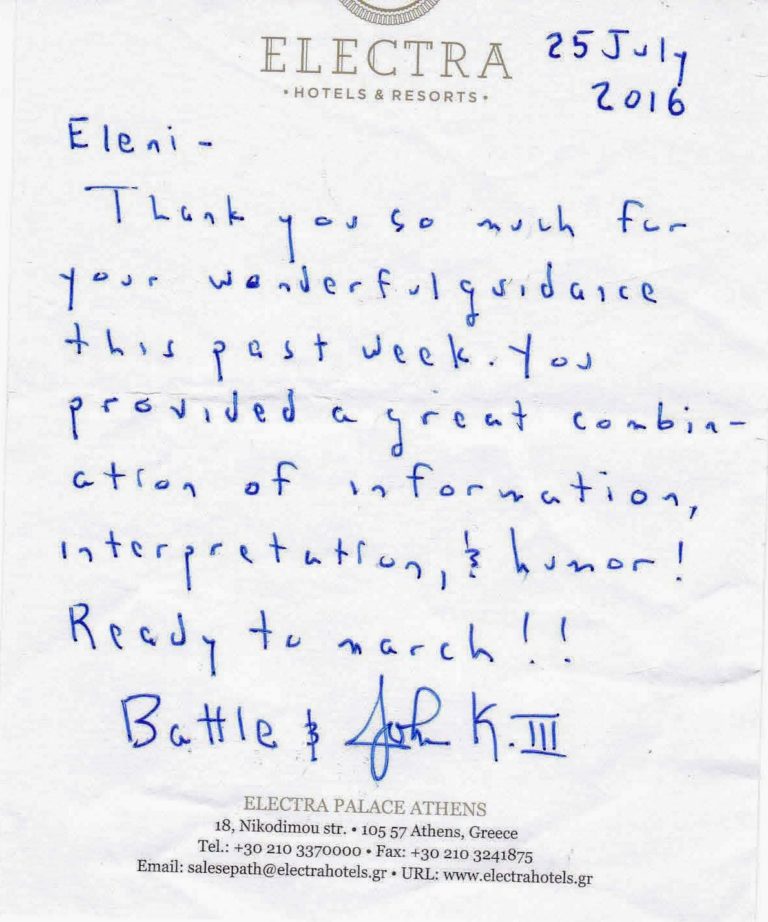 ELECTRA
• HOTELS & RESORTS •
25 July
2016
Eleni -
Thank you so much for
your wonderful guidance
this past week. You
provided a great combin-
ation of information,
interpretation, & humor!
Ready to march!!
Battle & John K. III
ELECTRA PALACE ATHENS
18, Nikodimou str. • 105 57 Athens, Greece
Tel.: +30 210 3370000 • Fax: +30 210 3241875
Email: salesepath@electrahotels.gr • URL: www.electrahotels.gr